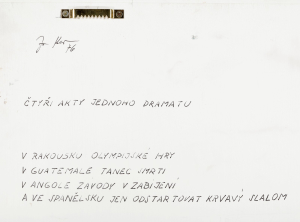 76
ČTYŘI AKTY JEDNOHO DRAMATU
V RAKOUSKU OLYMPIJSKÉ HRY
V GUATEMALE TANEC SMRTI
V ANGOLE ZÁVODY V ZABÍJENÍ
A VE ŠPANĚLSKU JEN ODSTARTOVAT KRVAVÝ SLALOM